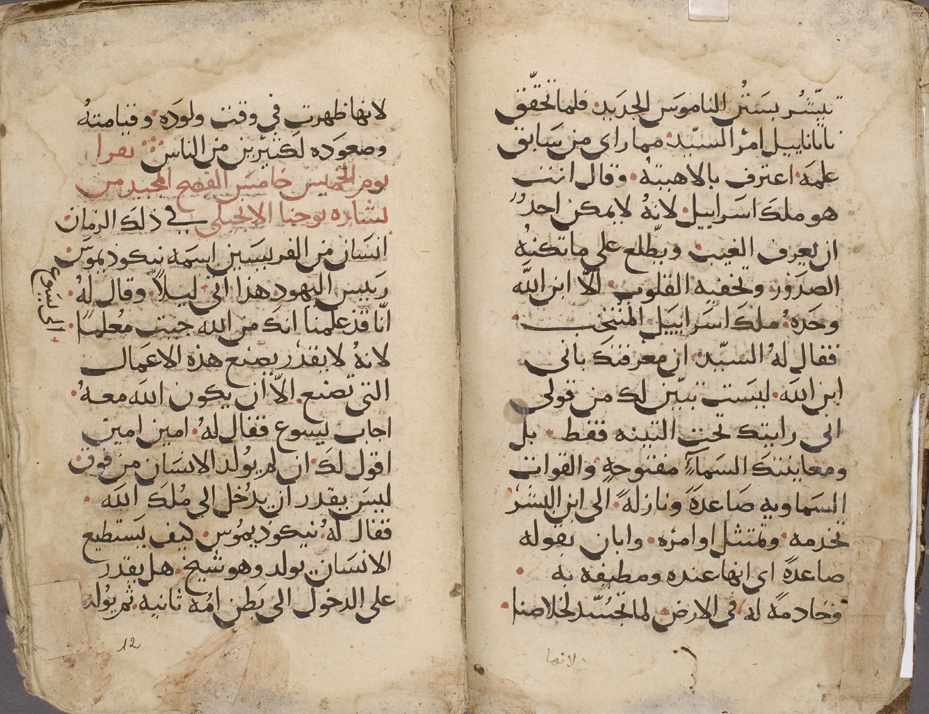 تبشر بسنن الناموس الجديد فلما تحقق
ناثاناييل امر السيد مما راى من سابق
علمه اعترف بالاهيته وقال انت
هو ملك اسراييل لانه لا يمكن احد
ان يعرف الغيب ويطلع على ما تكنه
الصدور وتخفيه القلوب الا ابن الله
وحده ملك اسراييل المنتخب
فقال له السيد ان معرفتك باني
ابن الله ليست تبين لك من قولي
اني رايتك تحت التينه فقط بل
ومعاينتك السماء مفتوحه والقوات
السماويه صاعدة ونازلة الى ابن البشر
تخدمه وتمتثل اوامره وابان بقوله
صاعدة اي انها عنده ومطيفه به
وخادمة له في الارض لما تجسد لخلاصنا
لانها
لانها ظهرت في وقت ولوده وقيامته
وصعوده لكثيرين من الناس نقرا
يوم الخميس خامس الفصح المجيد من
بشارة يوحنا الانجيلي في ذلك الزمان
انسان من الفريسين اسمه نيكوديموس
رييس اليهود هذا اتى ليلا وقال له
الى يسوع
انا قد علمنا انك من الله جيت معلما
لانه لا يقدر يصنع هذه الاعمال
التي تصنع الا أن يكون الله معه
اجاب يسوع فقال له امين امين
اقول لك ان لم يولد الانسان من فوق
ليس يقدر ان يدخل الى ملك الله
فقال له نيكوديموس كيف يستطيع
الانسان يولد وهو شيخ هل يقدر
على الدخول الى بطن امه ثانيه ثم يولد
12